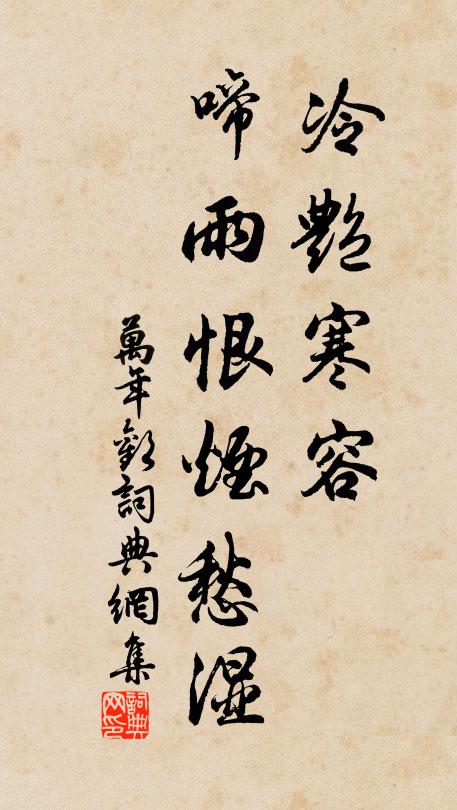 冷艷寒容
啼雨恨煙愁濕
萬年歡詞典網集
詞典網印